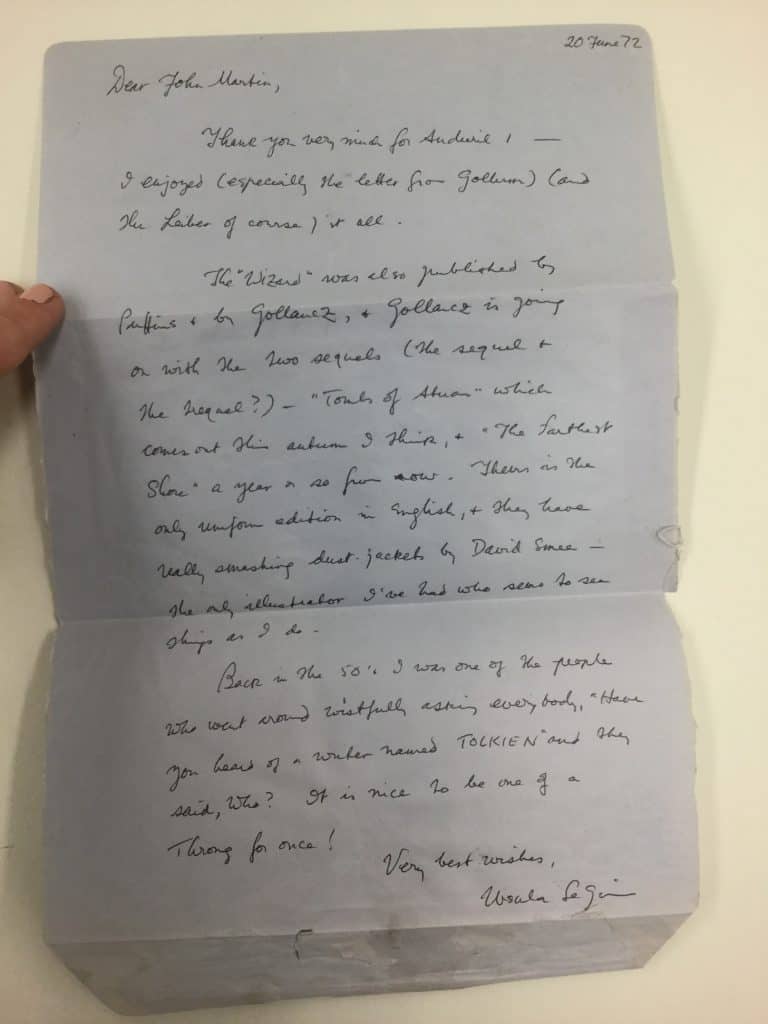 20 June 72
Dear John Martin,
Thank you very much for Anduril 1 —
I enjoyed (especially the letter from Gollum) (and
the Leiber of course) it all.
The "Wizard" was also published by
Puffins & by Gollancz, & Gollancz is going
on with the two sequels (the sequel &
the trequel?) — "Tombs of Atuan" which
comes out this autumn I think, & "The Farthest
Shore" a year or so from now. Theirs is the
only uniform edition in English, & they have
really smashing dust-jackets by David Smee —
the only illustrator I've had who seems to see
things as I do.
Back in the 50's I was one of the people
who went around wistfully asking everybody, "Have
you heard of a writer named TOLKIEN" and they
said, Who? It is nice to be one of a
Throng for once!
Very best wishes,
Ursula Le Guin